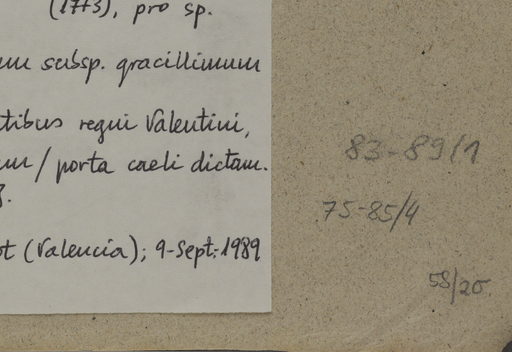 (1773), pro sp.
um subsp. gracillimum
tibus regni Valentini,
um/porta caeli dictam.
3.
ot (Valencia); 9-Sept-1989
83-89/1
75-85/4
58/20